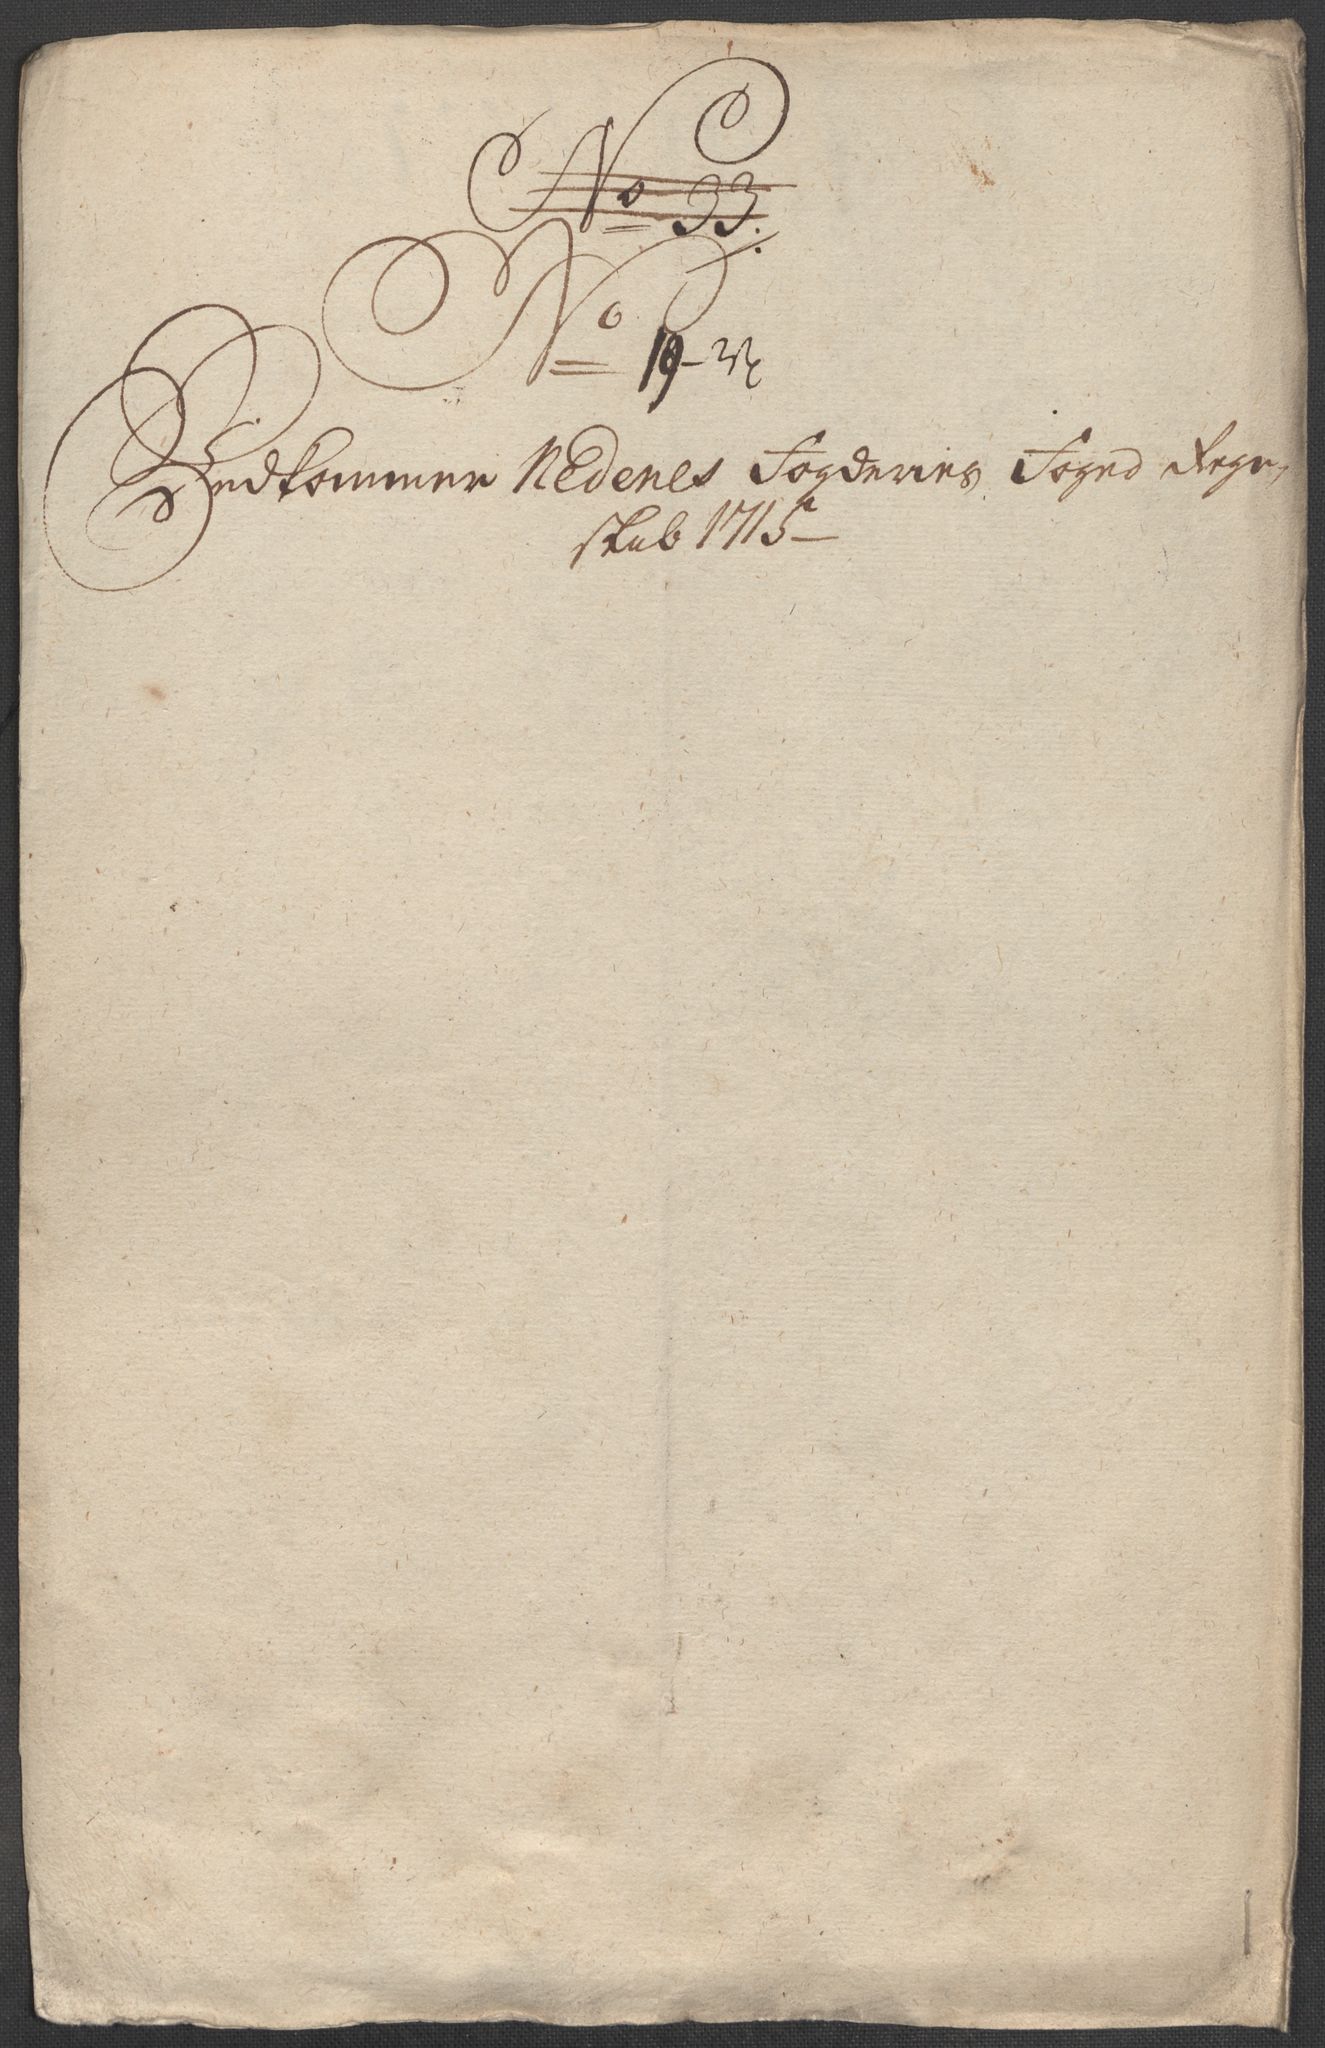 No 33.
No 19
Vedkommer Nedenes Fogderies Foged Regn-
skab 1715